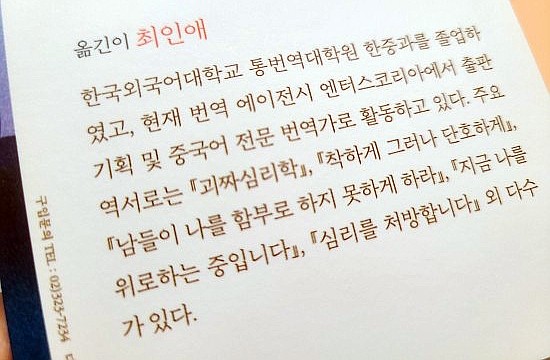 옮긴이 최인애
한국외국어대학교 통번역대학원 한중과를 졸업하
였고, 현재 번역 에이전시 엔터스코리아에서 출판
기획 및 중국어 전문 번역가로 활동하고 있다. 주요
역서로는 『괴짜심리학』, 『착하게 그러나 단호하게』,
『남들이 나를 함부로 하지 못하게 하라』, 『지금 나를
위로하는 중입니다』, 『심리를 처방합니다』 외 다수
가 있다.
구입문의 TEL : 02)323-7234